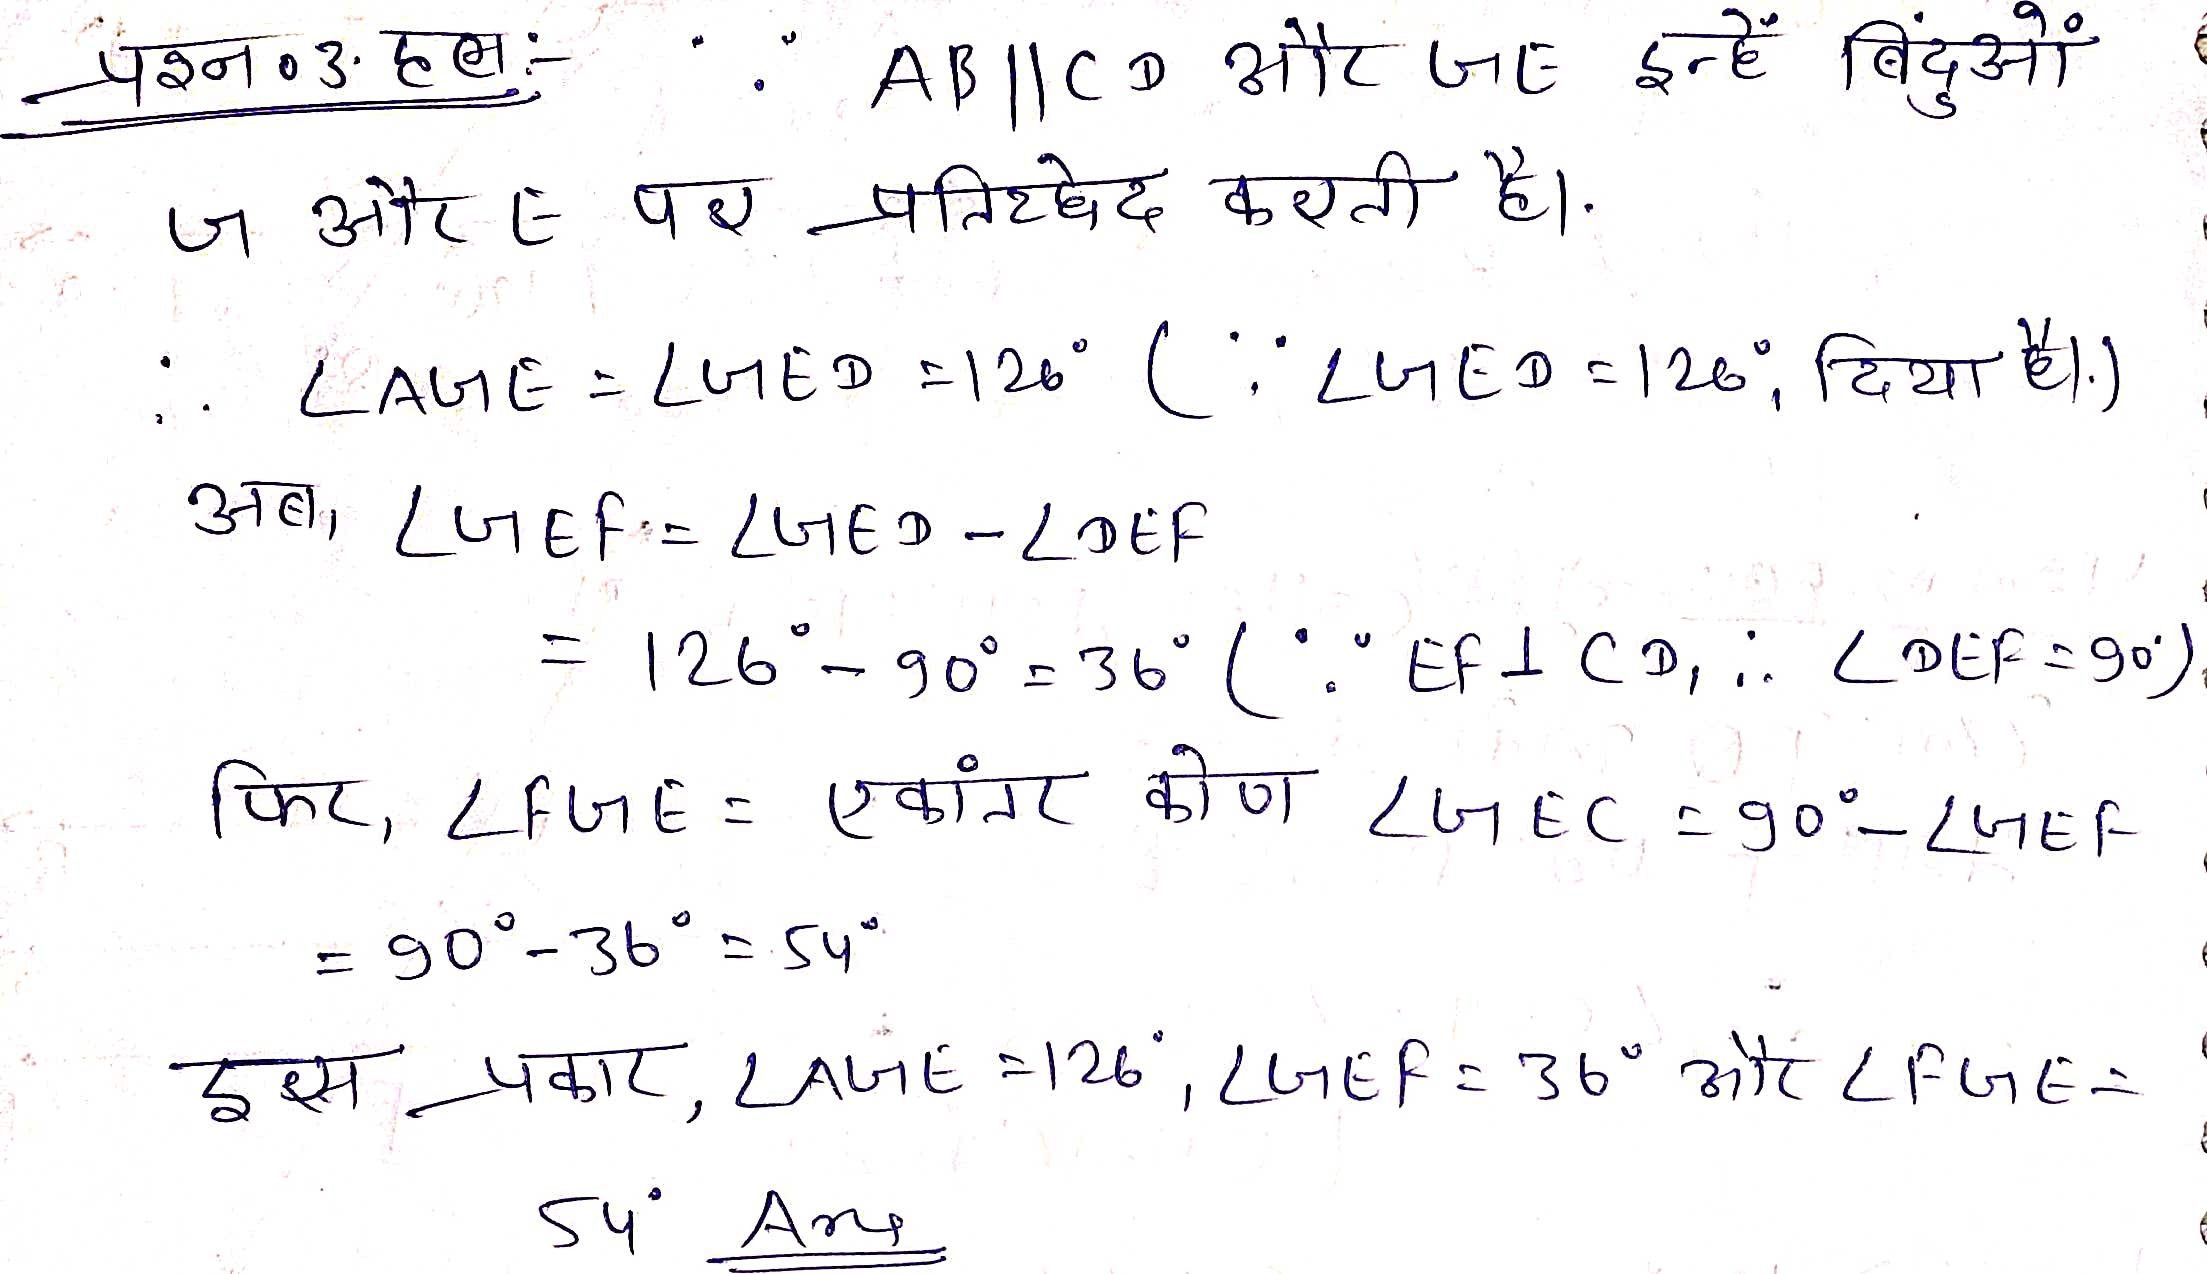 प्रश्न०3. हल:- ∵ AB||CD और GE इन्हें बिंदुओं
G और E पर प्रतिच्छेद करती है।.
∴ ∠AGE = ∠GED = 126° (∵ ∠GED = 126°, दिया है।.)
अब, ∠GEF = ∠GED - ∠DEF
= 126° - 90° = 36° (∵ EF ⊥ CD, ∴ ∠DEF = 90°)
फिर, ∠FGE = एकांतर कोण ∠GEC = 90° - ∠GEF
= 90° - 36° = 54°
इस प्रकार, ∠AGE = 126°, ∠GEF = 36° और ∠FGE =
54° Ans